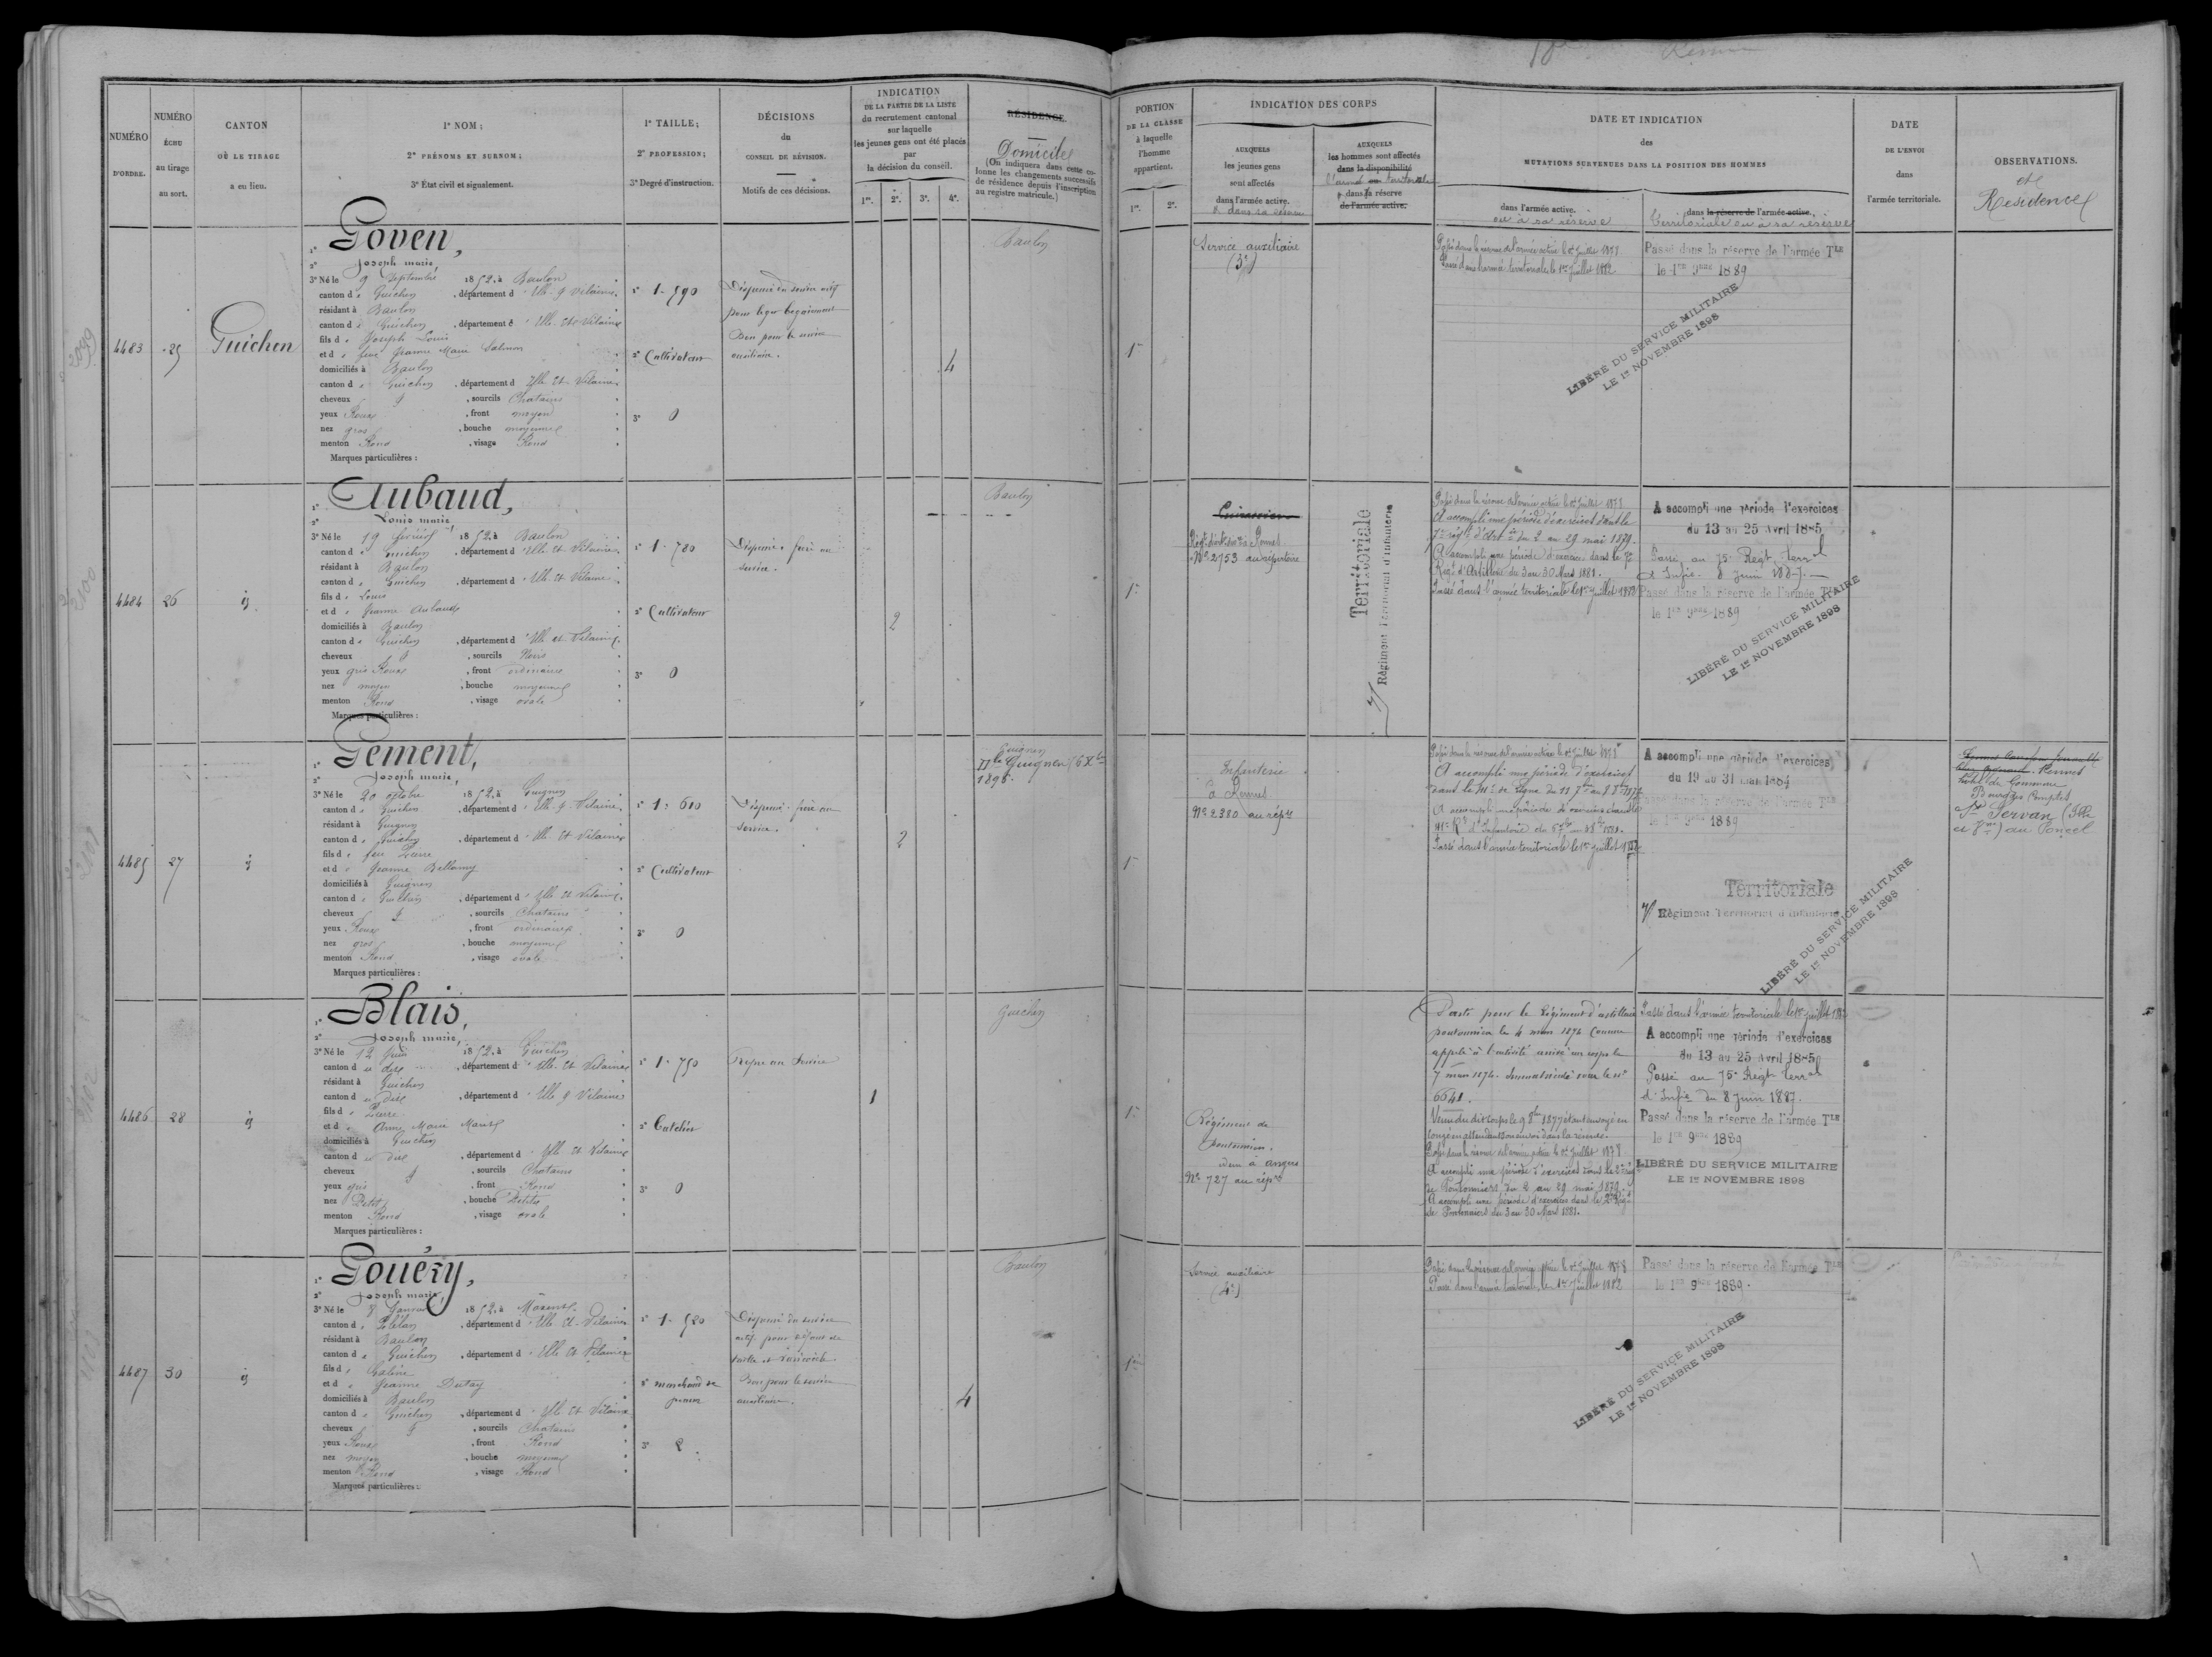 NUMÉRO
D'ORDRE.
NUMÉRO
ÉCHU
au tirage
au sort.
CANTON
OÙ LE TIRAGE
a eu lieu.
1º NOM;
2º PRÉNOMS ET SURNOM;
3º État civil et signalement.
1º TAILLE;
2º PROFESSION;
3º Degré d'instruction.
DÉCISIONS
du
CONSEIL DE RÉVISION.
Motifs de ces décisions.
INDICATION
DE LA PARTIE DE LA LISTE
du recrutement cantonal
sur laquelle
les jeunes gens ont été placés
par
la décision du conseil.
1re. 2e. 3e. 4e.
RÉSIDENCE
Domicile
(On indiquera dans cette co-
lonne les changements successifs
de résidence depuis l'inscription
au registre matricule.)
PORTION
DE LA CLASSE
à laquelle
l'homme
appartient.
1re. 2e.
INDICATION DES CORPS
AUXQUELS
les jeunes gens
sont affectés
dans l'armée active.
AUXQUELS
les hommes sont affectés
dans la disponibilité
dans la réserve
de l'armée active.
DATE ET INDICATION
des
MUTATIONS SURVENUES DANS LA POSITION DES HOMMES
dans l'armée active.
ou à sa réserve
dans la réserve de l'armée active.
territoriale ou à sa réserve
DATE
DE L'ENVOI
dans
l'armée territoriale.
OBSERVATIONS.
et
Résidence
4483
25
Guichen
1º Goven,
2º Joseph marie,
3º Né le 9 Septembre 1852, à Baulon
canton de Guichen, département d'Ille & Vilaine
résidant à Baulon
canton de Guichen, département d'Ille et Vilaine
fils de Joseph Louis
et de feue Jeanne Marie
domiciliés à Baulon
canton de Guichen, département d'Ille et Vilaine
cheveux, sourcils Chatains
yeux Roux, front moyen
nez gros, bouche moyenne
menton Rond, visage Rond
Marques particulières :
1º 1. 590
2º Cultivateur
3º 0
Dispensé du service actif
pour léger bégaiement
Bon pour le service
auxiliaire.
4
Baulon
1re
Service auxiliaire
(3e)
Passé dans la réserve de l'armée active le 1er Juillet 1878
Passé dans l'armée territoriale le 1er Juillet 1882
Passé dans la réserve de l'armée Tle
le 1er 9bre 1889
LIBÉRÉ DU SERVICE MILITAIRE
LE 1er NOVEMBRE 1898
4484
26
id
1º Aubaud,
2º Louis marie,
3º Né le 19 février 1852, à Baulon
canton de Guichen, département d'Ille et Vilaine
résidant à Baulon
canton de Guichen, département d'Ille et Vilaine
fils de Louis
et de Jeanne Aubaud
domiciliés à Baulon
canton de Guichen, département d'Ille et Vilaine
cheveux, sourcils Noirs
yeux gris Roux, front ordinaire
nez moyen, bouche moyenne
menton Rond, visage ovale
Marques particulières :
1º 1. 720
2º Cultivateur
3º 0
Dispensé, frère au
service.
2
Baulon
1re
Nº 2753 au répertoire
Territoriale
Régiment Territorial d'Infanterie
Passé dans la réserve de l'armée active le 1er Juillet 1878
A accompli une période d'exercices dans le
7e régt d'Art ie du 2 au 29 mai 1879.
A accompli une période d'exercice dans le 7e
Régt d'Artillerie du 3 au 30 Mars 1881.
Passé dans l'armée territoriale le 1er juillet 1882
A accompli une période d'exercices
du 13 au 25 Avril 1885
Passé au 75e Regt terral
d'Infie 8 Juin 1887.
Passé dans la réserve de l'armée Tle
le 1er 9bre 1889
LIBÉRÉ DU SERVICE MILITAIRE
LE 1er NOVEMBRE 1898
4485
27
id
1º Gement,
2º Joseph marie,
3º Né le 20 octobre 1852, à Guignen
canton de Guichen, département d'Ille & Vilaine
résidant à Guignen
canton de Guichen, département d'Ille et Vilaine
fils de feu Pierre
et de Jeanne Bellamy
domiciliés à Guignen
canton de Guichen, département d'Ille et Vilaine
cheveux, sourcils Chatains
yeux Roux, front ordinaire
nez gros, bouche moyenne
menton Rond, visage ovale
Marques particulières :
1º 1. 610
2º Cultivateur
3º 0
Dispensé, frère au
service.
2
Guignen
1898.
1re
Infanterie
à Rennes
Nº 2380 au répre
Passé dans la réserve de l'armée active le 1er Juillet 1878
A accompli une période d'exercices
Passé dans l'armée territoriale le 1er juillet 1882
A accompli une période d'exercices
du 19 au 31 Mai 1884
Passé dans la réserve de l'armée Tle
le 1er 9bre 1889
Territoriale
Régiment Territorial d'Infanterie
LIBÉRÉ DU SERVICE MILITAIRE
LE 1er NOVEMBRE 1898
Rennes
St Servan (Ille
et Vne) au Poncel
4486
28
id
1º Blais,
2º Joseph marie,
3º Né le 12 Juin 1852, à Guichen
canton du dit, département d'Ille et Vilaine
résidant à Guichen
canton du dit, département d'Ille & Vilaine
fils de Pierre
et de Anne Marie
domiciliés à Guichen
canton du dit, département d'Ille et Vilaine
cheveux, sourcils Chatains
yeux gris, front Rond
nez Petit, bouche Petite
menton Rond, visage ovale
Marques particulières :
1º 1. 750
2º Batelier
3º 0
Propre au Service
1
Guichen
1re
Régiment de
pontonniers.
idem à Angers
Nº 727 au répre
Parti pour le Régiment d'artillerie
pontonnier le 4 mars 1874 comme
appelé à l'activité arrivé au corps le
7 mars 1874. Immatriculé sous le nº
6641.
Venu du dit corps le 9 8bre 1877 étant envoyé en
congé en attendant son envoi dans la réserve.
Passé dans la réserve de l'armée active le 1er Juillet 1878
A accompli une période d'exercices dans le 2e Régt
de Pontonniers du 2 au 29 mai 1879.
A accompli une période d'exercices dans le 2e Régt
de Pontonniers du 3 au 30 Mars 1881.
Passé dans l'armée territoriale le 1er juillet 1882
A accompli une période d'exercices
du 13 au 25 Avril 1885
Passé au 75e Regt terral
d'Infie du 8 Juin 1887.
Passé dans la réserve de l'armée Tle
le 1er 9bre 1889
LIBÉRÉ DU SERVICE MILITAIRE
LE 1er NOVEMBRE 1898
4487
30
id
1º Gouéry,
2º Joseph marie,
3º Né le 8 Janvier 1852, à Maxent
canton de Plélan, département d'Ille et Vilaine
résidant à Baulon
canton de Guichen, département d'Ille et Vilaine
et de Jeanne
domiciliés à Baulon
canton de Guichen, département d'Ille et Vilaine
cheveux, sourcils Chatains
yeux Roux, front Rond
nez moyen, bouche moyenne
menton Rond, visage Rond
Marques particulières :
1º 1. 520
2º marchand de
peaux
3º 2
Dispensé du service
actif pour défaut de
taille et varicocèle
Bon pour le service
auxiliaire.
4
Baulon
1re
Service auxiliaire
(4e)
Passé dans la réserve de l'armée active le 1er Juillet 1878
Passé dans l'armée territoriale le 1er Juillet 1882
Passé dans la réserve de l'armée Tle
le 1er 9bre 1889.
LIBÉRÉ DU SERVICE MILITAIRE
LE 1er NOVEMBRE 1898